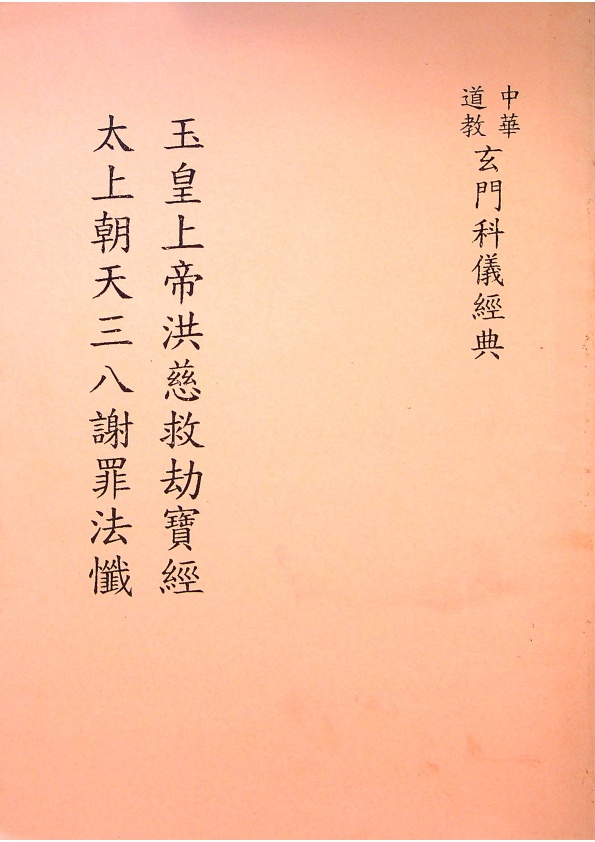 中華道教
玄門科儀經典
玉皇上帝洪慈救劫寶經
太上朝天三八謝罪法懺